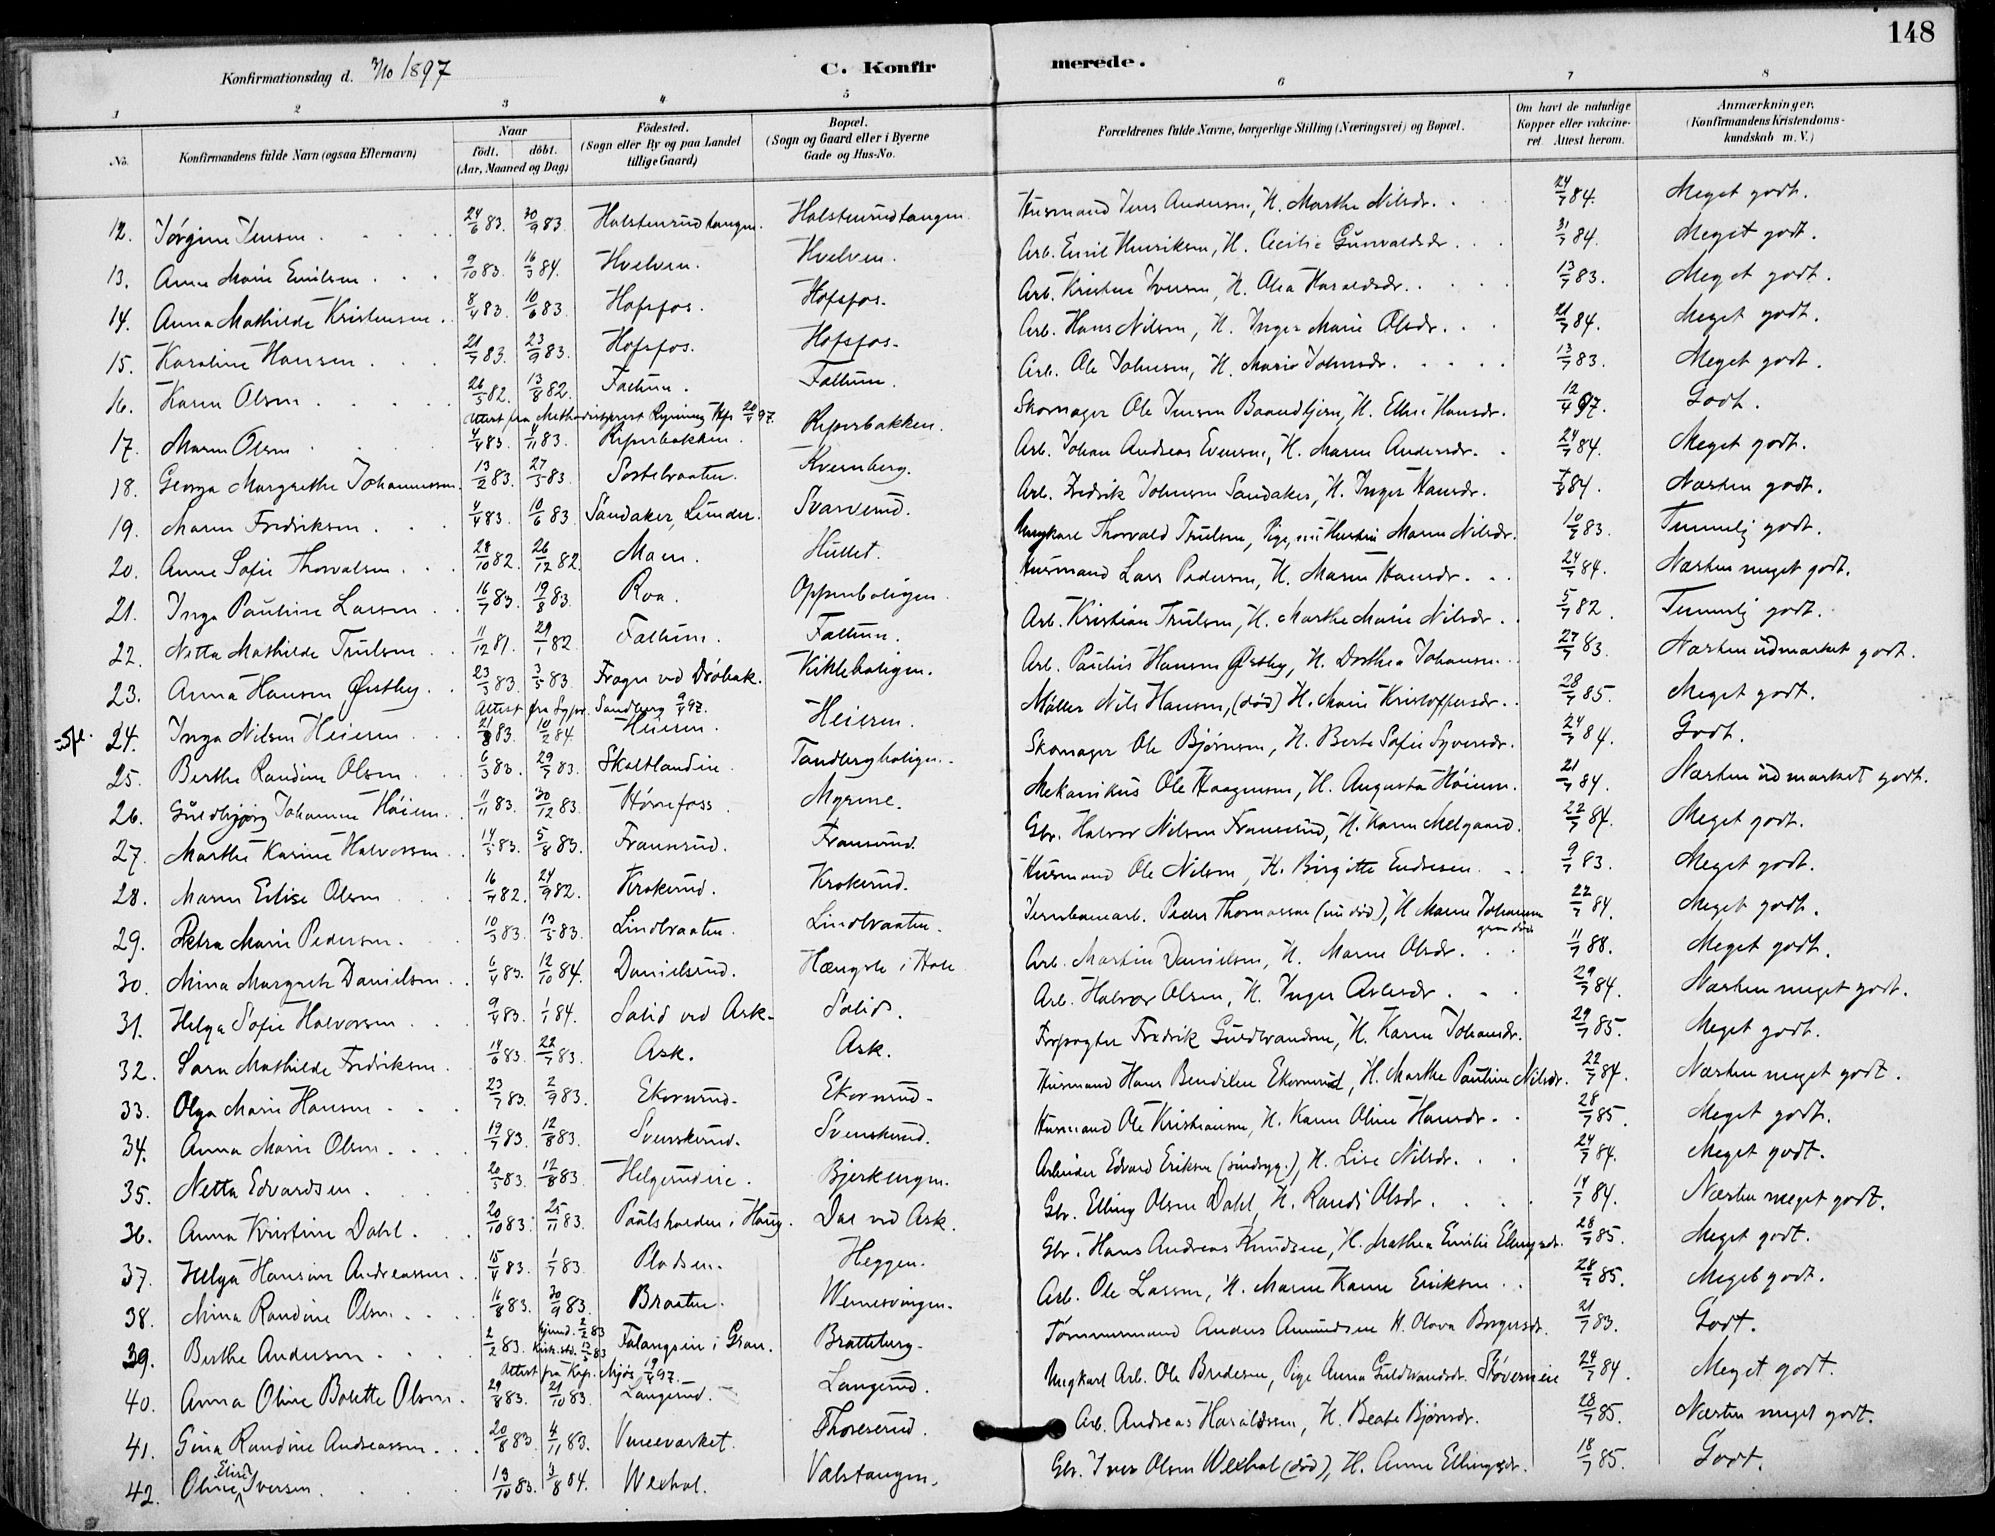 148
Konfirmationsdag d. 3/10 1897 C. Konfirmerede.
1 2 3 4 5 6 7 8
No. Konfirmandens fulde Navn (ogsaa Efternavn) Naar födt. döbt. (Aar, Maaned og Dag) Födested. (Sogn eller By og paa Landet tillige Gaard) Bopæl. (Sogn og Gaard eller i Byerne Gade og Hus-No. Forældrenes fulde Navne, borgerlige Stilling (Næringsvei) og Bopæl. Om havt de naturlige Kopper eller vakcineret. Attest herom. Anmærkninger. (Konfirmandens Kristendomskundskab m. V.)
12. Jørgine Jensen. 24/6 83. 30/9 83. Halstenrudtangen. Halstenrudtangen. Husmand Jens Andersen, H. Marthe Nilsdr. 24/7 84. Meget godt.
13. Anna Marie Emilsen. 9/10 83. 16/3 84. Hvelven. Hvelven. Arb. Emil Henriksen, H. Cecilie Gunvaldsdr. 31/7 84. Meget godt.
14. Anna Mathilde Kristensen. 8/4 83. 10/6 83. Hofsfos. Hofsfos. Arb. Kristen Iversen, H. Olea Haraldsdr. 13/7 83. Meget godt.
15. Karoline Hansen. 21/7 83. 23/9 83. Hofsfos. Hofsfos. Arb. Hans Nilsen, H. Inger Marie Olsdr. 21/7 84. Meget godt.
16. Karen Olsen. 26/5 82. 13/8 82. Fallum. Fallum. Arb. Ole Johnsen, H. Marie Johnsdr. 13/7 83. Meget godt.
Attest fra Methodistprest Rynning Kfs 20/4 97.
17. Maren Olsen. 4/4 83. 4/11 83. Ripersbakken. Ripersbakken. Skomager Ole Jensen Baandbjern, H. Ellie Hansdr. 12/4 97. Godt.
18. Georga Margrethe Johannessen. 13/2 83. 27/5 83. Sostebraaten. Kvernberg. Arb. Johan Andreas Evensen, H. Maren Andersdr. 24/7 84. Meget godt.
19. Maren Fredriksen. 4/4 83. 10/6 83. Sandaker, Lunder. Svarverud. Arb. Fredrik Johnsen Sandaker, H. Inger Hansdr. 84. Næsten godt.
20. Anne Sofie Thorvalsen. 28/10 82. 26/12 82. Moen. Hullet. Ungkarl Thorvald Trulsen, Pige, nu Hustru Maren Nilsdr. 10/7 83. Temmelig godt.
21. Inga Pauline Larsen. 16/7 83. 19/8 83. Roa. Oppenboligen. Husmand Lars Pedersen, H. Maren Hansdr. 24/7 84. Næsten meget godt.
22. Netta Mathilde Trulsen. 11/12 81. 29/1 82. Fallum. Fallum. Arb. Kristian Trulsen, H. Marthe Marie Nilsdr. 5/7 82. Temmelig godt.
23. Anna Hansen Østby. 23/3 83. 3/5 83. Frogn ved Drøbak. Vikleboligen. Arb. Paulus Hansen Østby, H. Dorthea Johansen. 27/7 83. Næsten udmærket godt.
Attest fra Sgpr. Sandberg 9/4 97.
24. Inga Nilsen Heieren. 21/8 83. 10/2 84. Heieren. Heieren. Møller Nils Hansen, (død) H. Marie Kristoffersdr. 28/7 85. Meget godt.
25. Berthe Randine Olsen. 6/3 83. 29/7 83. Skoltlandeie. Tandbergboligen. Skomager Ole Bjørnsen, H. Berte Sofie Syversdr. 24/7 84. Godt.
26. Guldbjørg Johanne Høiem. 11/11 83. 30/12 83. Hønefoss. Myrene. Mekanikus Ole Haagensen, H. Augusta Høiem. 21/7 84. Næsten udmærket godt.
27. Marthe Karine Halvorsen. 14/5 83. 5/8 83. Fransrud. Fransrud. Gbr. Halvor Nilsen Fransrud, H. Karen Melgaard. 22/7 84. Meget godt.
28. Maren Elise Olsen. 16/7 82. 24/9 82. Krokerud. Krokerud. Husmand Ole Nilsen, H. Birgitte Endresen. 9/7 83. Meget godt.
29. Petra Marie Pedersen. 10/3 83. 13/5 83. Lindbraaten. Lindbraaten. Jernbanearb. Peder Thomassen (nu død), H Maren Johannesen 22/7 84. Meget godt.
30. Mina Margrete Danielsen. 6/4 83. 12/10 84. Danielsrud. Hængsle i Hole Arb. Martin Danielsen, H. Maren Olsdr. 11/7 88. Meget godt.
31. Helga Sofie Halvorsen. 9/4 83. 1/1 84. Solid ved Ask. Solid. Arb. Halvor Olsen, H. Inger Aslesdr. 29/7 84. Næsten meget godt.
32. Sara Mathilde Fredriksen. 14/6 83. 22/7 83. Ask. Ask. Forpagter Fredrik Guldbrandsen, H. Karen Johansdr. 29/7 85. Meget godt.
33. Olga Marie Hansen. 23/7 83. 2/9 83. Ekornrud. Ekornrud. Husmand Hans Bendiksen Ekornrud, H. Marthe Pauline Nilsdr. 22/7 84. Næsten meget godt.
34. Anna Marie Olsen. 19/7 83. 12/8 83. Svenskerud. Svenskerud. Husmand Ole Kristiansen, H. Karen Oline Hansdr. 28/7 85. Meget godt.
35. Netta Edvardsen. 20/5 83. 12/8 83. Helgerudeie. Bjerkengen. Arbeider Edvard Eriksen (sindsyg.), H. Lise Nilsdr. 24/7 84. Meget godt.
36. Anna Kristine Dahl. 20/10 83. 25/11 83. Paalshaugen i Haug. Dal ved Ask. Gbr. Elling Olsen Dahl, H. Randi Olsdr. 14/7 84. Næsten meget godt.
37. Helga Hansine Andreassen. 15/4 83. 1/7 83. Pladsen. Heggen. Gbr. Hans Andreas Knudsen, H. Mathea Emilie Ellingsdr. 28/7 85. Meget godt.
38. Mina Randine Olsen. 16/8 83. 30/9 83. Braaten. Wemesvingen. Arb. Ole Larsen, H. Maren Karine Eriksen. 28/7 85. Meget godt.
39. Berthe Andersen. 2/2 83. hjemd. 2/2 83 Kirk. std. 13/5 83 Falangseie i Gran. Bratteberg. Tømmermand Anders Amundsen H. Olava Borgersdr. 21/7 83. Godt.
Attest fra Kap. Mjøs 19/4 97.
40. Anna Oline Bolette Olsen. 29/8 83. 21/10 83. Langerud. Langerud. Ungkarl Arb. Ole Bredesen, Pige Anna Guldbrandsdr. Støverneie 24/7 84. Meget godt.
41. Gina Randine Andreassen. 20/8 83. 4/11 83. Vaneværket. Thoresrud. Arb. Andreas Haraldsen, H. Beate Bjørnsdr. 28/7 85. Næsten meget godt.
42. Oline Elise Iversen. 13/10 83. 3/8 84. Wexhal. Valstangen. Gbr. Iver Olsen Wexhal (død), H. Anne Ellingsdr. 18/7 85. Godt.